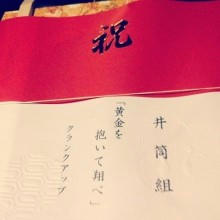 祝
井筒組
「黄金を
抱いて翔べ」
クランクアップ